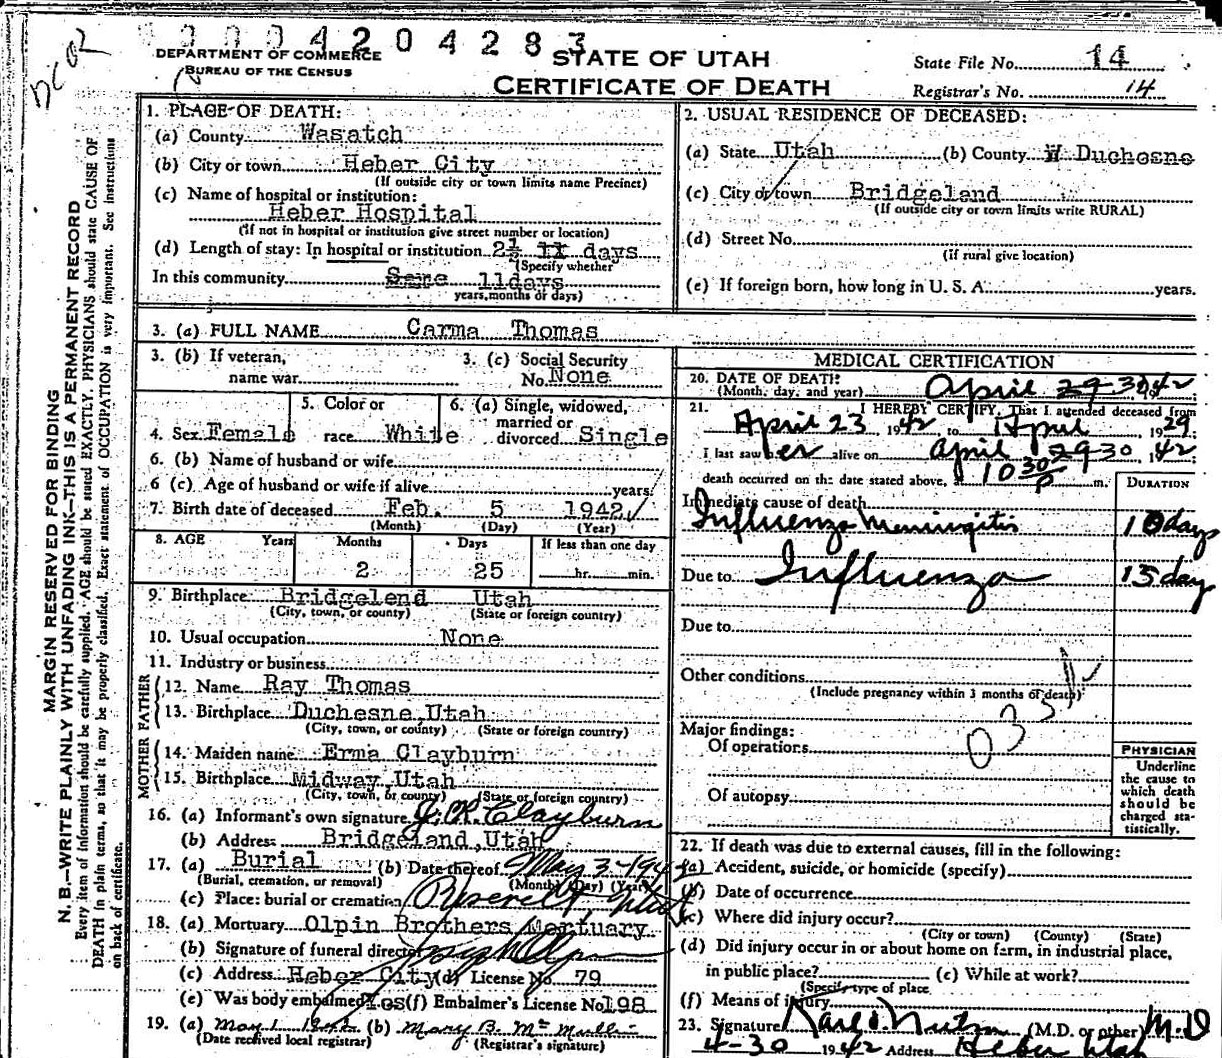 0004204283
DEPARTMENT OF COMMERCE
BUREAU OF THE CENSUS
STATE OF UTAH
CERTIFICATE OF DEATH
State File No. 14
Registrar's No. 14
MARGIN RESERVED FOR BINDING
N. B.—WRITE PLAINLY WITH UNFADING INK—THIS IS A PERMANENT RECORD
Every item of information should be carefully supplied. AGE should be stated EXACTLY. PHYSICIANS should state CAUSE OF
DEATH in plain terms, so that it may be properly classified. Exact statement of OCCUPATION is very important. See instructions
on back of certificate.
1. PLACE OF DEATH:
(a) County Wasatch
(b) City or town Heber City
(If outside city or town limits name Precinct)
(c) Name of hospital or institution:
Heber Hospital
(If not in hospital or institution give street number or location)
(d) Length of stay: In hospital or institution 2½ 11 days
(Specify whether
In this community Same 11days
years, months or days)
2. USUAL RESIDENCE OF DECEASED:
(a) State Utah (b) County W Duchesne
(c) City or town Bridgeland
(If outside city or town limits write RURAL)
(d) Street No.
(If rural give location)
(e) If foreign born, how long in U. S. A. years.
3. (a) FULL NAME Carma Thomas
3. (b) If veteran,
name war
3. (c) Social Security
No. None
4. Sex Female
5. Color or
race White
6. (a) Single, widowed,
married or
divorced Single
6. (b) Name of husband or wife
6 (c). Age of husband or wife if alive years
7. Birth date of deceased Feb. 5 1942
(Month) (Day) (Year)
8. AGE Years Months Days If less than one day
2 25 hr. min.
9. Birthplace Bridgelend Utah
(City, town, or county) (State or foreign country)
10. Usual occupation None
11. Industry or business
FATHER
12. Name Ray Thomas
13. Birthplace Duchesne, Utah
(City, town, or county) (State or foreign country)
MOTHER
14. Maiden name Erma Clayburn
15. Birthplace Midway, Utah
(City, town, or county) (State or foreign country)
16. (a) Informant's own signature J. R. Clayburn
(b) Address Bridgeland, Utah
17. (a) Burial (b) Date thereof May 3-1942
(Burial, cremation, or removal) (Month) (Day) (Year)
(c) Place: burial or cremation Roosevelt, Utah
18. (a) Mortuary Olpin Brothers Mortuary
(b) Signature of funeral director
(c) Address Heber City (d) License No. 79
(e) Was body embalmed Yes (f) Embalmer's License No. 198
19. (a) May 1 1942 (b) Mary B. McMullin
(Date received local registrar) (Registrar's signature)
MEDICAL CERTIFICATION
20. DATE OF DEATH:
(Month, day, and year) April 29 30 1942
21. I HEREBY CERTIFY, That I attended deceased from
April 23 1942 to April 1929
I last saw her alive on April 29 30 1942
death occurred on the date stated above, at 10 30 P m.
DURATION
Immediate cause of death
Influenza Meningitis 10 days
Due to Influenza 15 day
Due to
Other conditions
(Include pregnancy within 3 months of death)
Major findings:
Of operations
Of autopsy
PHYSICIAN
Underline
the cause to
which death
should be
charged sta-
tistically.
22. If death was due to external causes, fill in the following:
(a) Accident, suicide, or homicide (specify)
(b) Date of occurrence
(c) Where did injury occur?
(City or town) (County) (State)
(d) Did injury occur in or about home on farm, in industrial place,
in public place? (e) While at work?
(Specify type of place
(f) Means of injury
23. Signature (M.D. or other) M.D
4-30 1942 Address Heber Utah